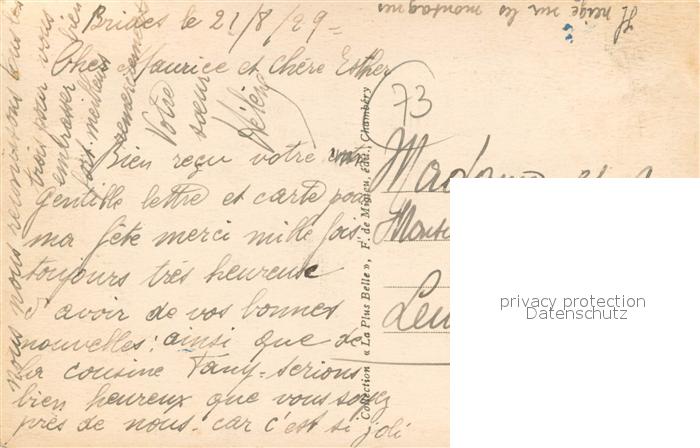 Brides le 21/8/29 =
Cher Maurice et chère Esther
Bien reçu votre
gentille lettre et carte pour
ma fête merci mille fois
toujours très heureuse
d'avoir de vos bonnes
nouvelles: ainsi que de
la cousine Fany = serions
bien heureux que vous soyez
près de nous. car c'est si joli
nous nous réunissons tous les
trois pour vous
embrasser bien
fort meilleurs
Votre
sœur
Hélène
Il neige sur les montagnes
73
Collection « La Plus Belle », F. de Migieu, édit., Chambéry
Madame et
privacy protection
Datenschutz